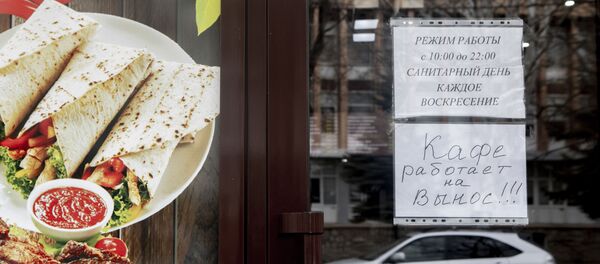 РЕЖИМ РАБОТЫ
с 10:00 до 22:00
САНИТАРНЫЙ ДЕНЬ
КАЖДОЕ
ВОСКРЕСЕНИЕ
Кафе
работает
на
Вынос!!!